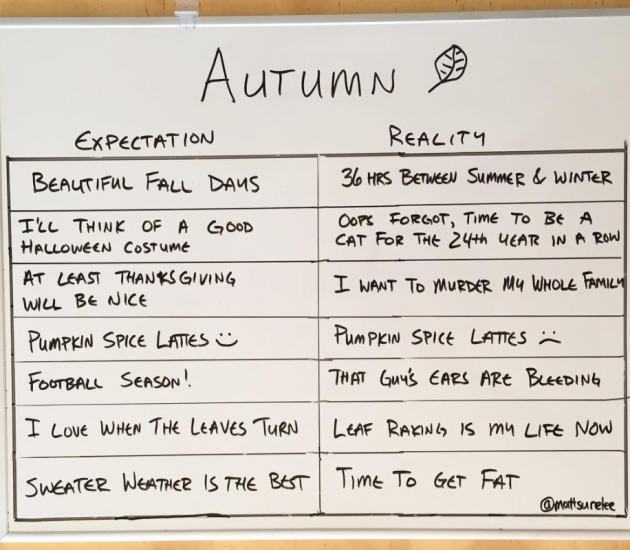 AUTUMN
EXPECTATION
REALITY
BEAUTIFUL FALL DAYS
36 HRS BETWEEN SUMMER & WINTER
I'LL THINK OF A GOOD
HALLOWEEN COSTUME
OOPS FORGOT, TIME TO BE A
CAT FOR THE 24th YEAR IN A ROW
AT LEAST THANKSGIVING
WILL BE NICE
I WANT TO MURDER MY WHOLE FAMILY
PUMPKIN SPICE LATTES :)
PUMPKIN SPICE LATTES :(
FOOTBALL SEASON!
THAT GUY'S EARS ARE BLEEDING
I LOVE WHEN THE LEAVES TURN
LEAF RAKING IS MY LIFE NOW
SWEATER WEATHER IS THE BEST
TIME TO GET FAT
@mattsurelee